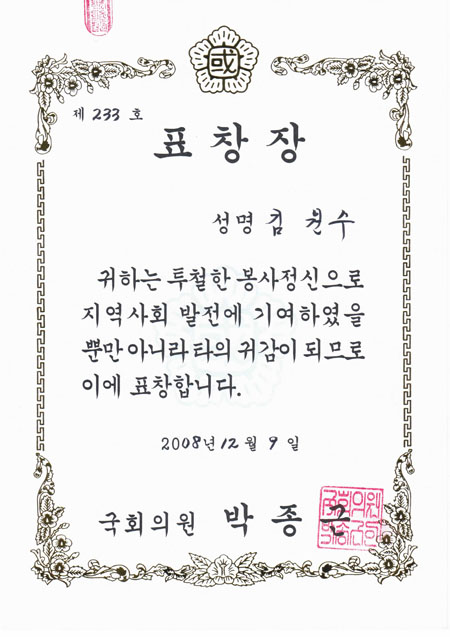 國
제 233 호
표창장
성명 김 권수
귀하는 투철한 봉사정신으로
지역사회 발전에 기여하였을
뿐만아니라 타의 귀감이 되므로
이에 표창합니다.
2008년 12월 9일
국회의원 박종근